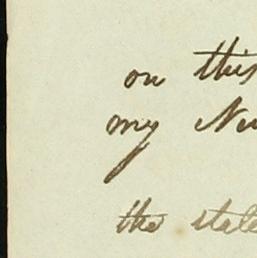 on this
my
the state